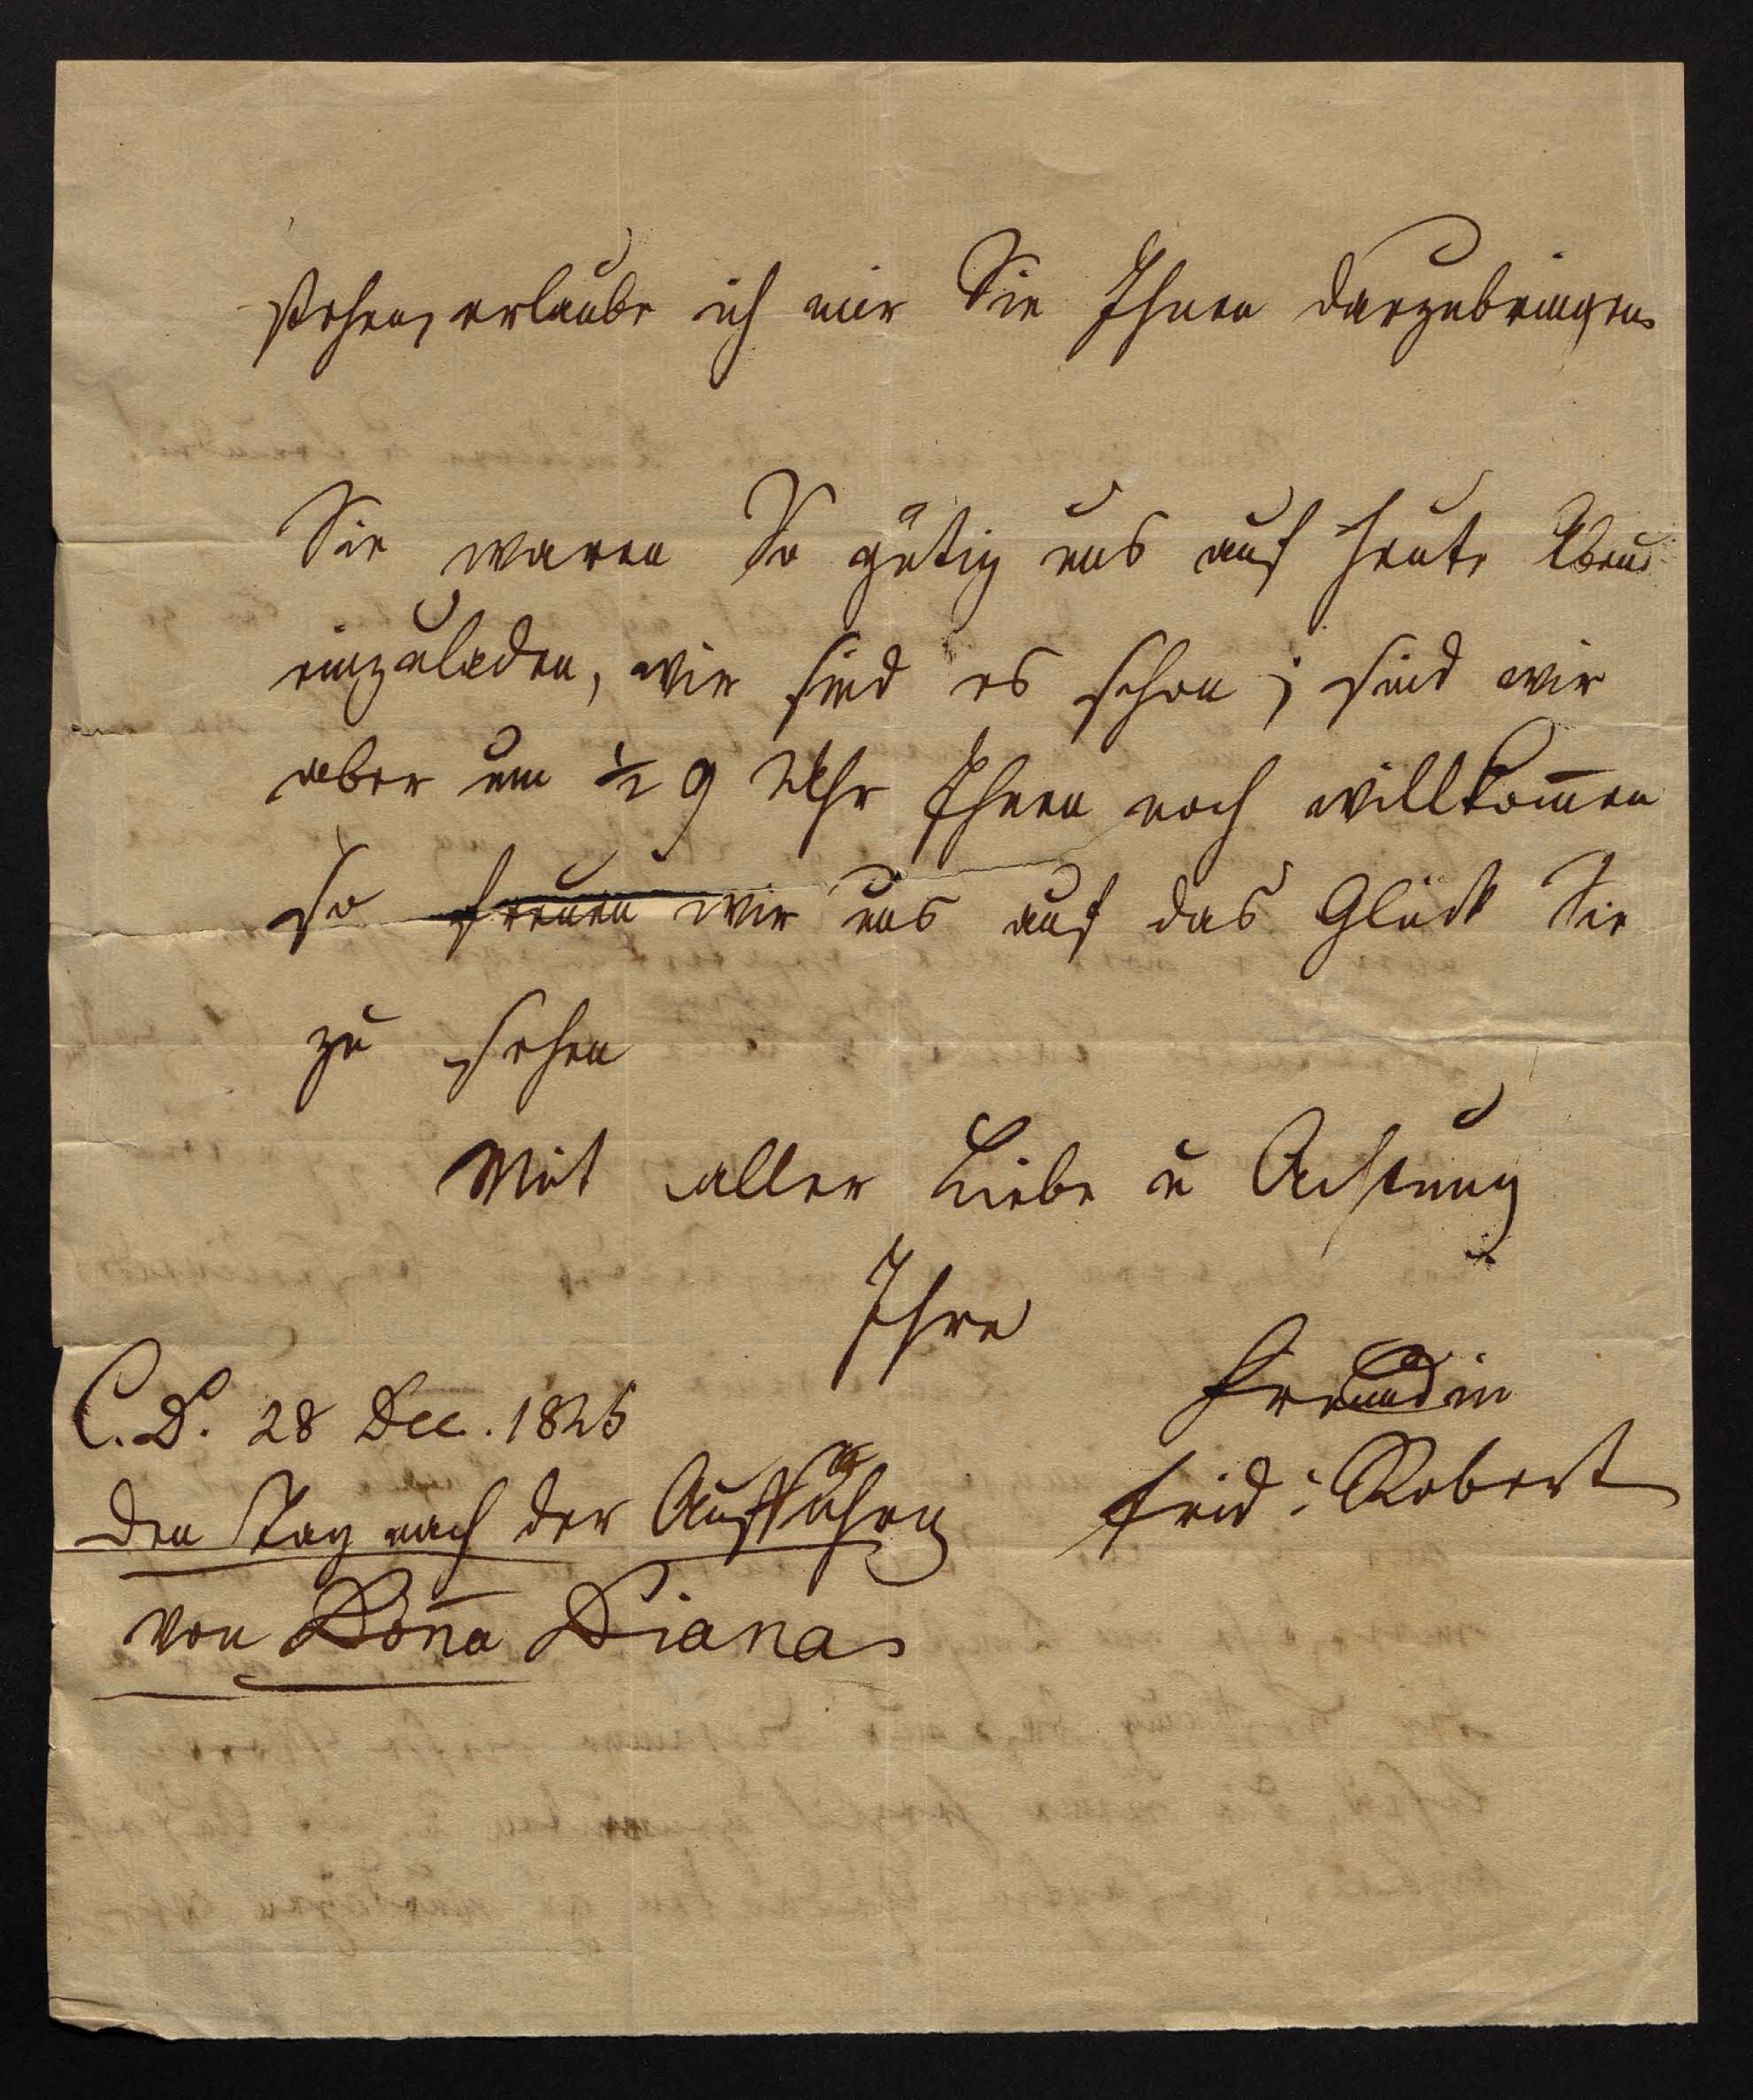 stehen, erlaube ich mir Sie Ihnen darzubringen.
Sie waren So gütig uns auf heute Abend
einzuladen, wir sind es schon; sind wir
aber um ½ 9 Uhr Ihnen noch willkom̅en
so freuen wir uns auf das Glück Sie
zu sehen
Mit aller Liebe u Achtung
Ihre
Freundin
Frid: Robert
C. D. 28 Dec. 1825
den Tag nach der Aufführg
von Don̅a Diana